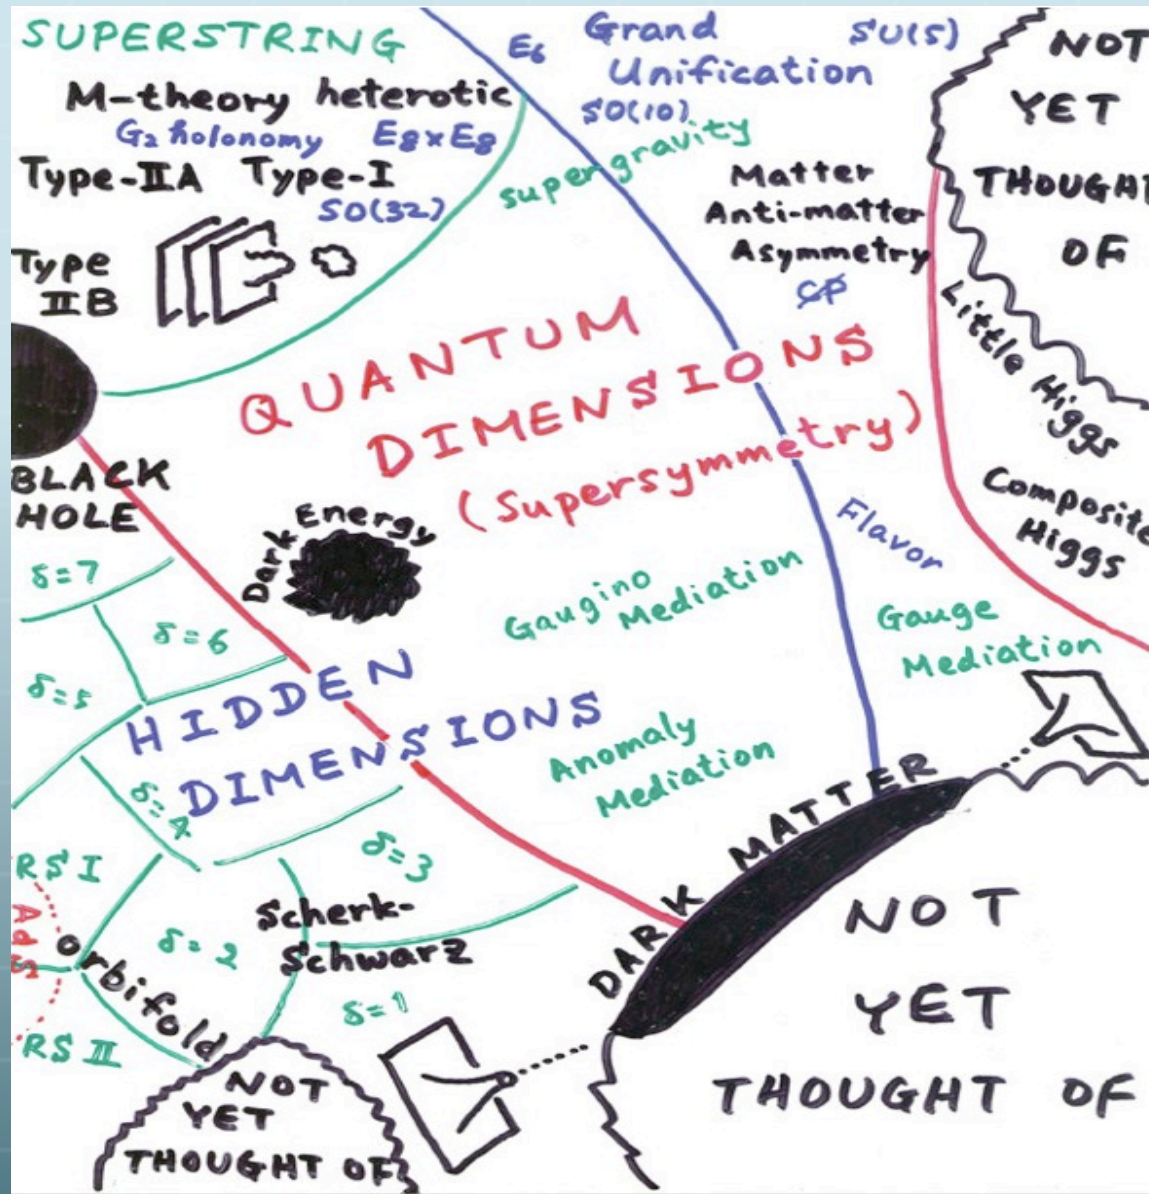 SUPERSTRING
M-theory heterotic
G₂ holonomy E8xE8
Type-IIA Type-I
SO(32)
Type
IIB
E6
Grand
Unification
SU(5)
SO(10)
supergravity
Matter
Anti-matter
Asymmetry
CP
NOT
YET
THOUGHT
OF
Little Higgs
Composite
Higgs
QUANTUM
DIMENSIONS
(Supersymmetry)
BLACK
HOLE
Dark Energy
Flavor
Gaugino
Mediation
Gauge
Mediation
Anomaly
Mediation
δ=7
δ=6
δ=5
HIDDEN
DIMENSIONS
δ=4
δ=3
RS I
AdS
Orbifold
δ=2
Scherk-
Schwarz
δ=1
RS II
DARK MATTER
NOT
YET
THOUGHT OF
NOT
YET
THOUGHT OF